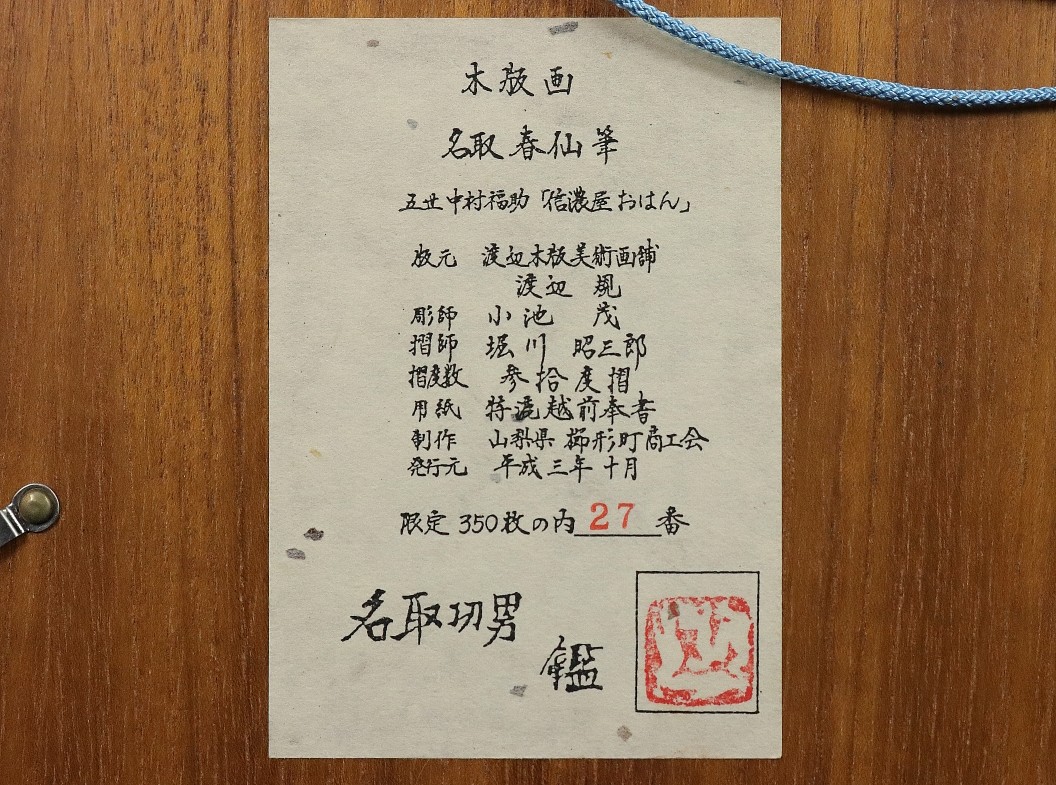 木版画
名取春仙筆
五世中村福助「信濃屋おはん」
版元 渡辺木版美術画舗
渡辺 規
彫師 小池 茂
摺師 堀川 昭三郎
摺度数 参拾度摺
用紙 特漉越前奉書
制作 山梨県 櫛形町商工会
発行元 平成三年十月
限定350枚の内27番
名取功男
鑑